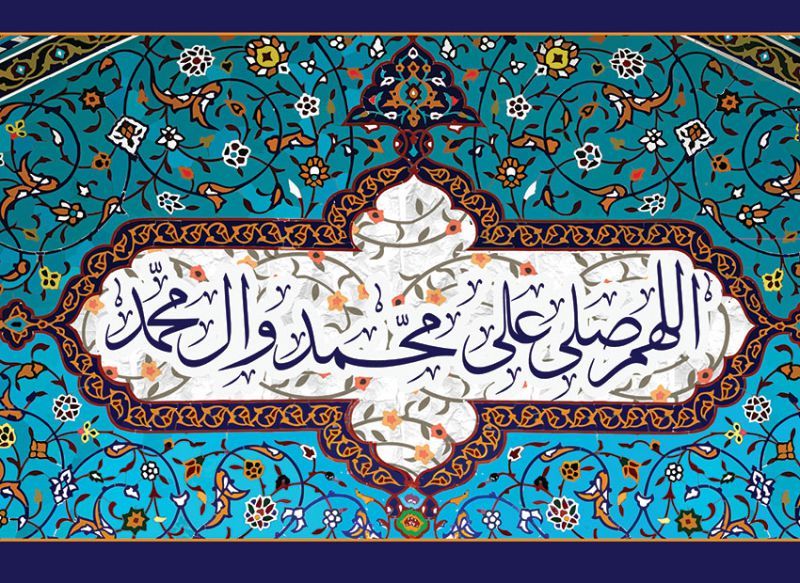 اللهم صلی علی محمّد وال محمّد